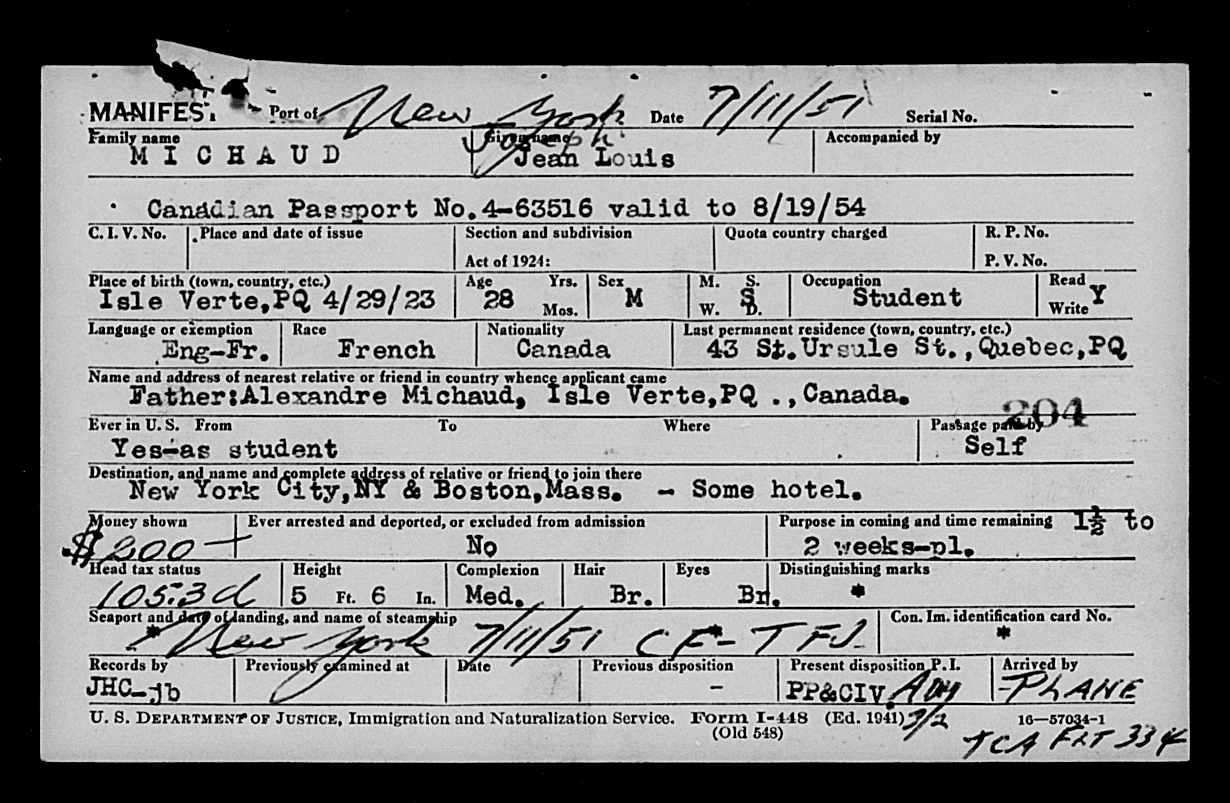 MANIFEST Port of New York Date 7/11/51 Serial No.
Family name Given name Accompanied by
MICHAUD Joseph Jean Louis
Canadian Passport No.4-63516 valid to 8/19/54
C. I. V. No. Place and date of issue Section and subdivision Quota country charged R. P. No.
Act of 1924: P. V. No.
Place of birth (town, country, etc.) Age Yrs. Sex M. S. Occupation Read
Isle Verte,PQ 4/29/23 28 Mos. M W. S D. Student Write Y
Language or exemption Race Nationality Last permanent residence (town, country, etc.)
Eng-Fr. French Canada 43 St.Ursule St.,Quebec,PQ
Name and address of nearest relative or friend in country whence applicant came
Father:Alexandre Michaud, Isle Verte,PQ .,Canada.
204
Ever in U. S. From To Where Passage paid by
Yes-as student Self
Destination, and name and complete address of relative or friend to join there
New York City,NY & Boston,Mass. - Some hotel.
Money shown Ever arrested and deported, or excluded from admission Purpose in coming and time remaining 1½ to
$200 No 2 weeks-pl.
Head tax status Height Complexion Hair Eyes Distinguishing marks
105.3d 5 Ft. 6 In. Med. Br. Br. *
Seaport and date of landing, and name of steamship Con. Im. identification card No.
* New York 7/11/51 CF-TFJ *
Records by Previously examined at Date Previous disposition Present disposition P. I. Arrived by
JHC-jb - PP&CIV. Adm PLANE
U. S. DEPARTMENT OF JUSTICE, Immigration and Naturalization Service. Form I-448 (Ed. 1941) 16—57034-1
(Old 548) TCA FLT 334